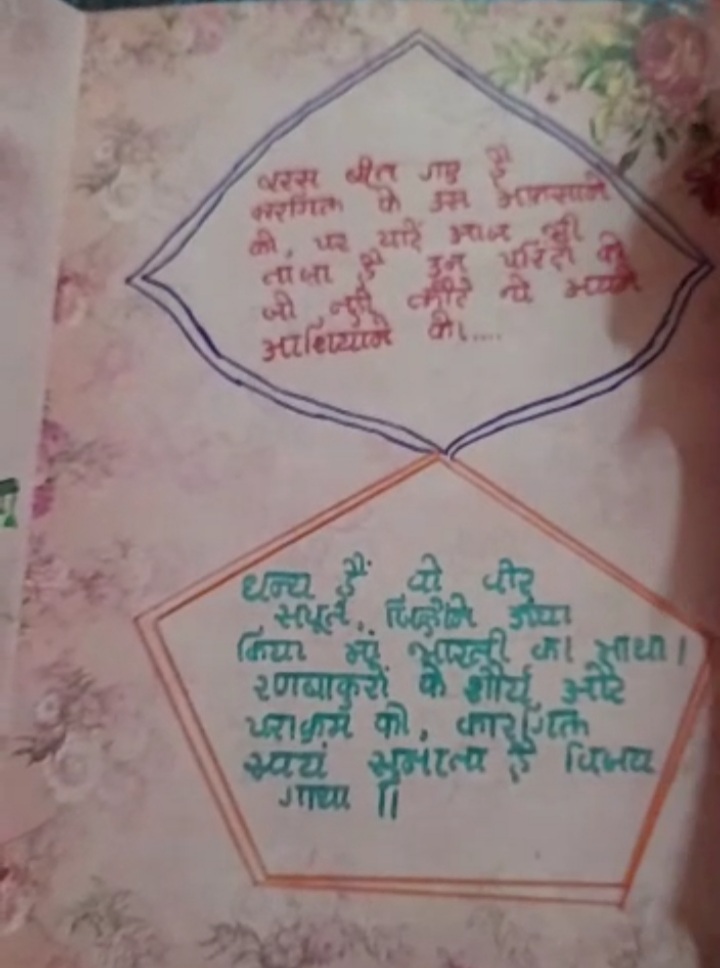 बरस बीत गए है
कारगिल के उस अफसाने
को, पर यादें आज भी
ताजा है उन परिंदों की
जो नहीं लौटे थे अपने
आशियाने को....
धन्य हैं वो वीर
सपूत, जिन्होंने ऊँचा
किया माँ भारती का माथा।
रणबाकुरों के शौर्य और
पराक्रम की, कारगिल
स्वयं सुनाता है विजय
गाथा ॥